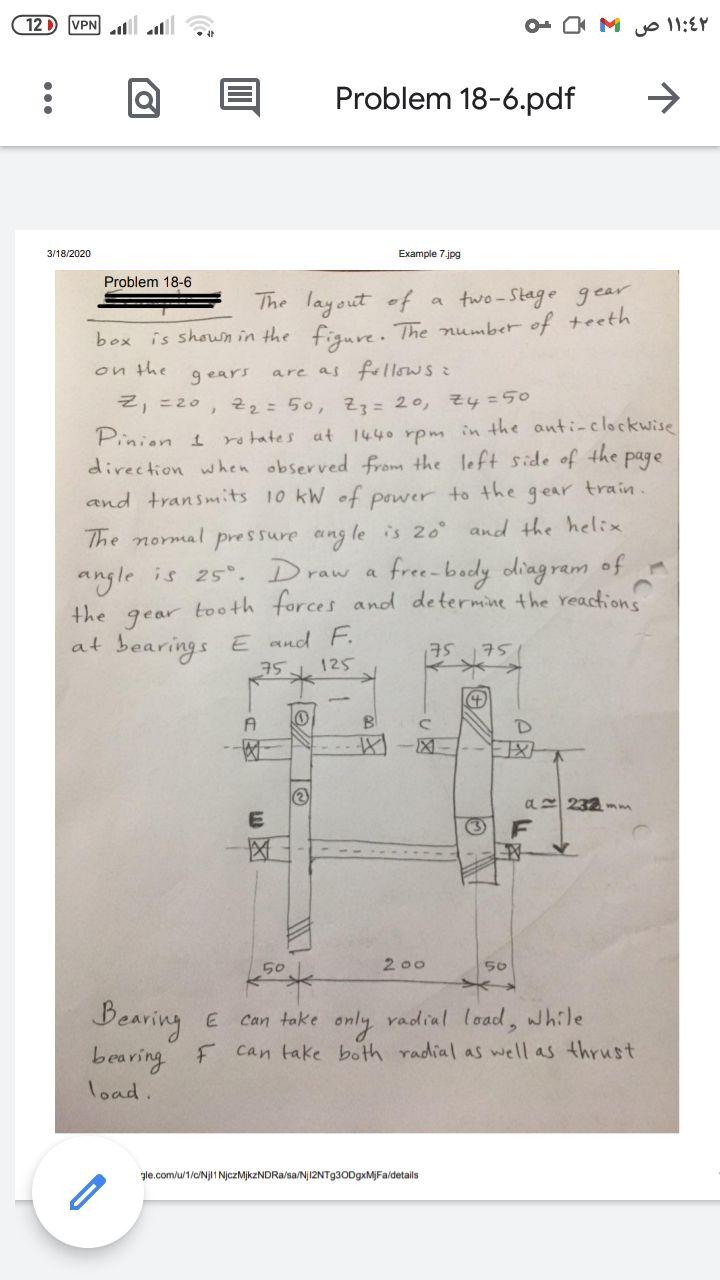 12
VPN
ص ١١:٤٢
Problem 18-6.pdf
3/18/2020
Example 7.jpg
Problem 18-6
The layout of a two-stage gear
box is shown in the figure. The number of teeth
on the gears are as follows:
Z1 = 20, Z2 = 50, Z3 = 20, Z4 = 50
Pinion 1 rotates at 1440 rpm in the anti-clockwise
direction when observed from the left side of the page
and transmits 10 kW of power to the gear train.
The normal pressure angle is 20° and the helix
angle is 25°. Draw a free-body diagram of
the gear tooth forces and determine the reactions
at bearings E and F.
75 125
75 75
A 1 B C 4 D
2
a ≃ 232 mm
E 3 F
50 200 50
Bearing E can take only radial load, while
bearing F can take both radial as well as thrust
load.
gle.com/u/1/c/NjI1NjczMjkzNDRa/sa/NjI2NTg3ODgxMjFa/details